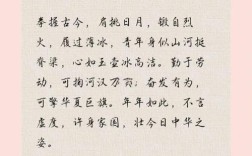 拳握古今，肩挑日月，锻自烈
火，履过薄冰，青年身似山河挺
脊梁，心如玉壶冰高洁。勤于劳
动，可掬河汉万芴；奋发有为，
可擎华夏巨旗。年年如此，不言
虚度，许身家国，壮今日中华之
姿。